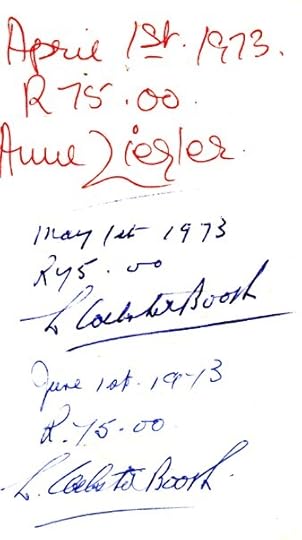 April 1st. 1973.
R 75.00.
Anne Ziegler.
May 1st 1973
R75.00
L Webster Booth
June 1st. 1973
R.75.00
L. Webster Booth.